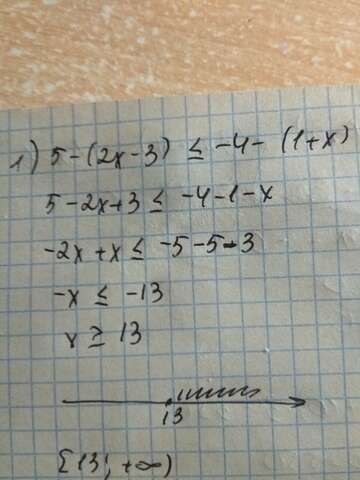 1) 5-(2x-3) ≤ -4- (1+x)
5-2x+3 ≤ -4-1-x
-2x+x ≤ -5-5-3
-x ≤ -13
x ≥ 13
13
[13; +∞)